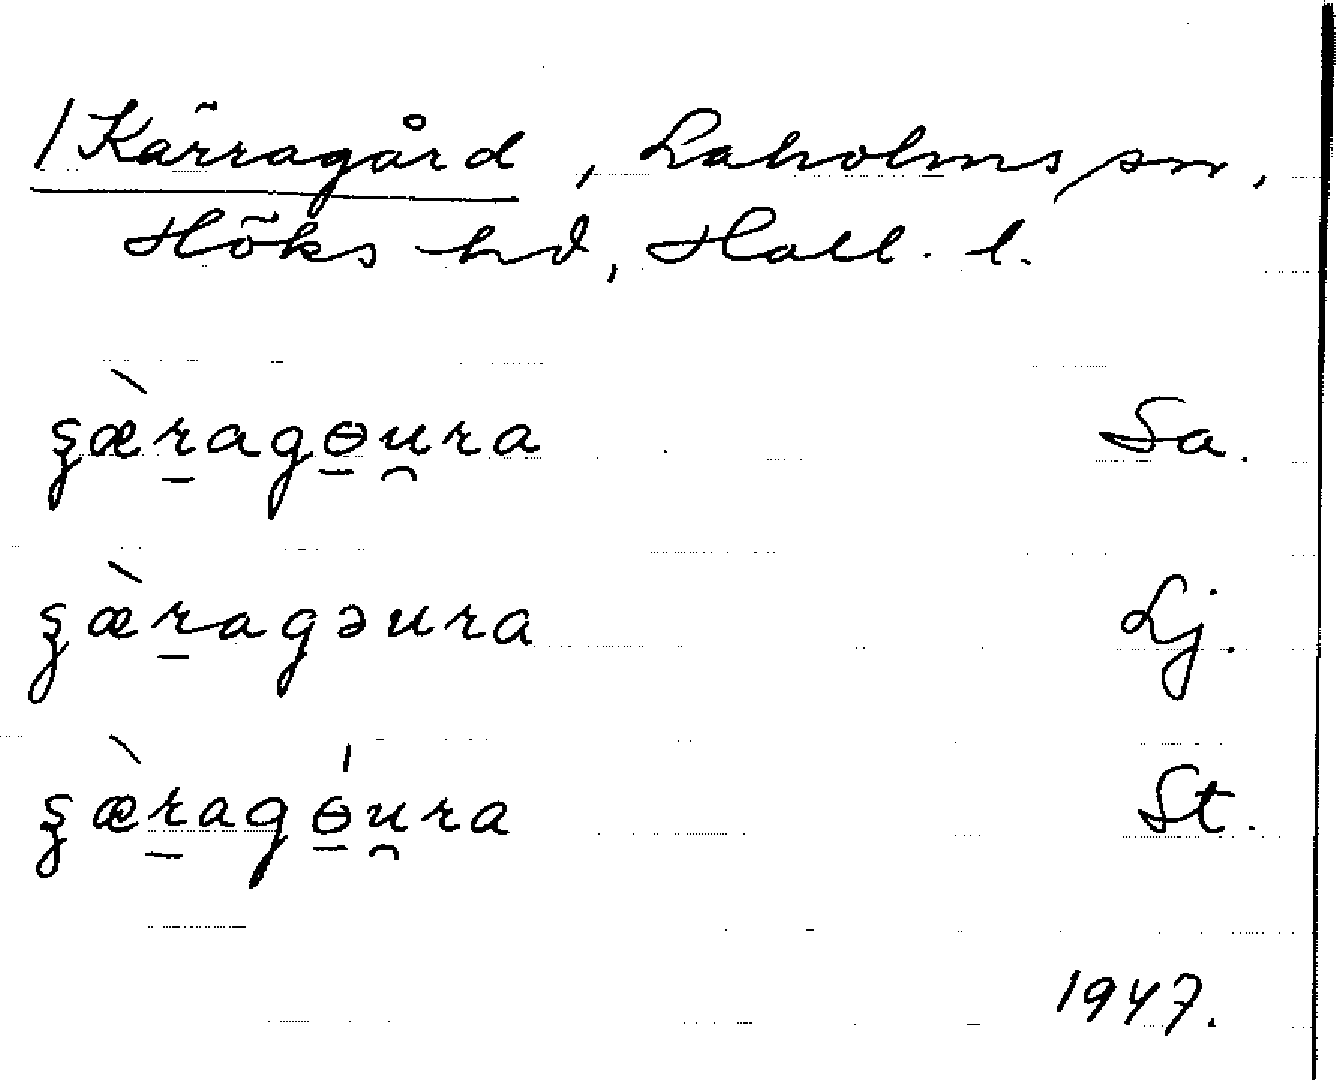 /Kärragård, Laholms sn,
Höks hd, Hall. l.
ʂæ̀r̠agɵ̠u̯ra Sa.
ʂæ̀r̠agəura Lj.
ʂæ̀r̠agɵ̠́u̯ra St.
1947.